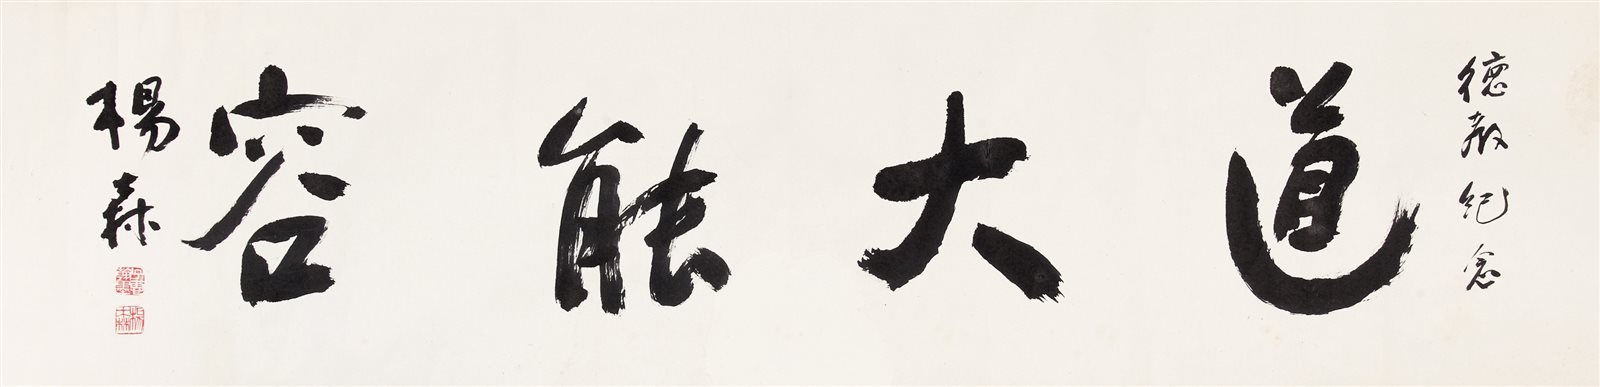 德教紀念
道大能容
楊森